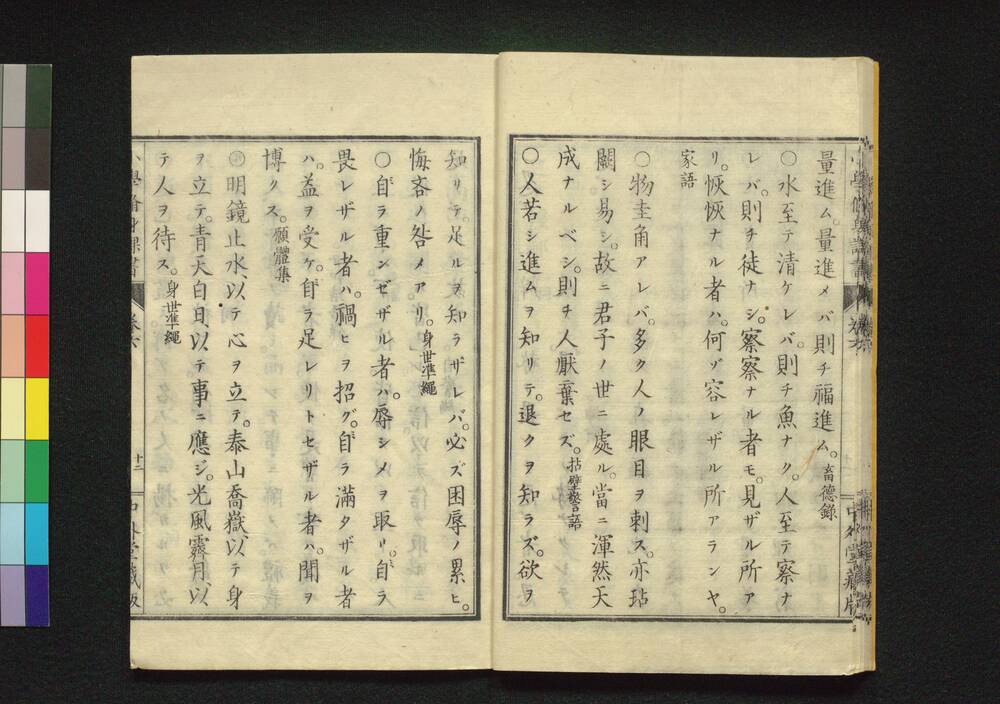 量進ム。量進メバ則チ福進ム。畜德錄
〇水至テ清ケレバ。則チ魚ナク。人至テ察ナ
レバ。則チ徒ナシ。察察ナル者モ。見ザル所ア
リ。恢恢ナル者ハ。何ゾ容レザル所アランヤ。
家語
〇物圭角アレバ。多ク人ノ眼目ヲ刺ス。亦玷
闕シ易シ。故ニ君子ノ世ニ處ル。當ニ渾然天
成ナルベシ。則チ人厭棄セズ。拈壁警語
〇人若シ進ムヲ知リテ。退クヲ知ラズ。欲ヲ
中外堂藏版
知リテ。足ルヲ知ラザレバ。必ズ困辱ノ累ヒ。
悔吝ノ咎メアリ。身世準繩
〇自ラ重ンゼザル者ハ。辱シメヲ取リ。自ラ
畏レザル者ハ。禍ヒヲ招グ。自ラ滿タザル者
ハ。益ヲ受ケ。自ラ足レリトセザル者ハ。聞ヲ
博クス。願體集
〇明鏡止水。以テ心ヲ立テ。泰山喬嶽以テ身
ヲ立テ。青天白日。以テ事ニ應ジ。光風霽月。以
テ人ヲ待ス。身世準繩
十二